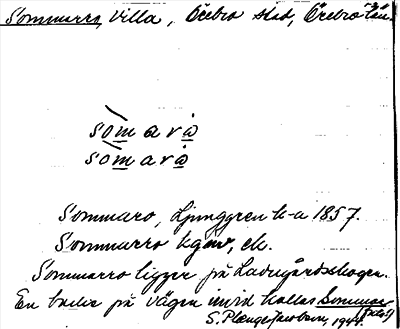 Sommarro, villa, Örebro stad, Örebro län
somarȧ
somarȧ
Sommaro, Ljunggren k-a 1857.
Sommarro kgmv, ek.
Sommarro ligger på Ladugårdsskogen.
En backe på vägen invid kallas Sommar
S. Plenge Jacobson, 1944.